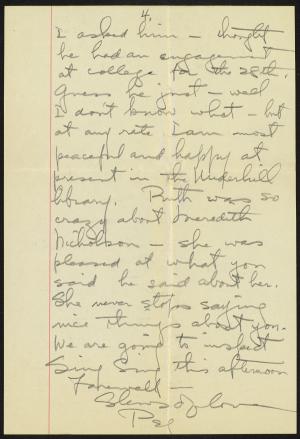 4.
I asked him — thought
he had an engagement
at college for the 28th.
Guess he just — well
I don't know what — but
at any rate I am most
peaceful and happy at
present in the Underhill
library. Ruth was so
crazy about Meredith
Nicholson — she was
pleased at what you
said he said about her.
She never stops saying
nice things about you.
We are going to inspect
Sing Sing this afternoon
Farewell —
Slews of love
Peg